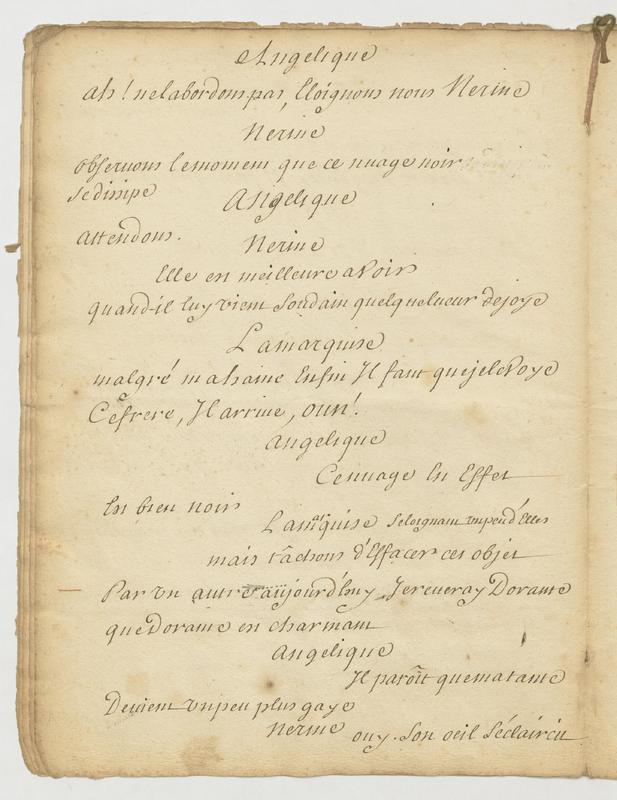 Angelique
ah! nelabordons pas, Eloignons nous Nerine
Nerine
observons lemoment que ce nuage noir
se dissipe
Angelique
attendons.
Nerine
Elle en meilleure a voir
quand-il luy vient soudain quelquelueur dejoye
Lamarquise
malgré mahaine Enfin Il faut quejeleVoye
Cefrere, Il arrive, oun!
Angelique
Cenuage En Effet
En bien noir
Lamarquise seloignant unpeu d'Elles
mais tâchons d'Effacer cet objet
Par un autre aujourd'huy Jereveray Dorante
queDorante en charmant
Angelique
Il paroît quematante
Devient unpeu plus gaye
Nerine
ouy. Son oeil s'éclaircit